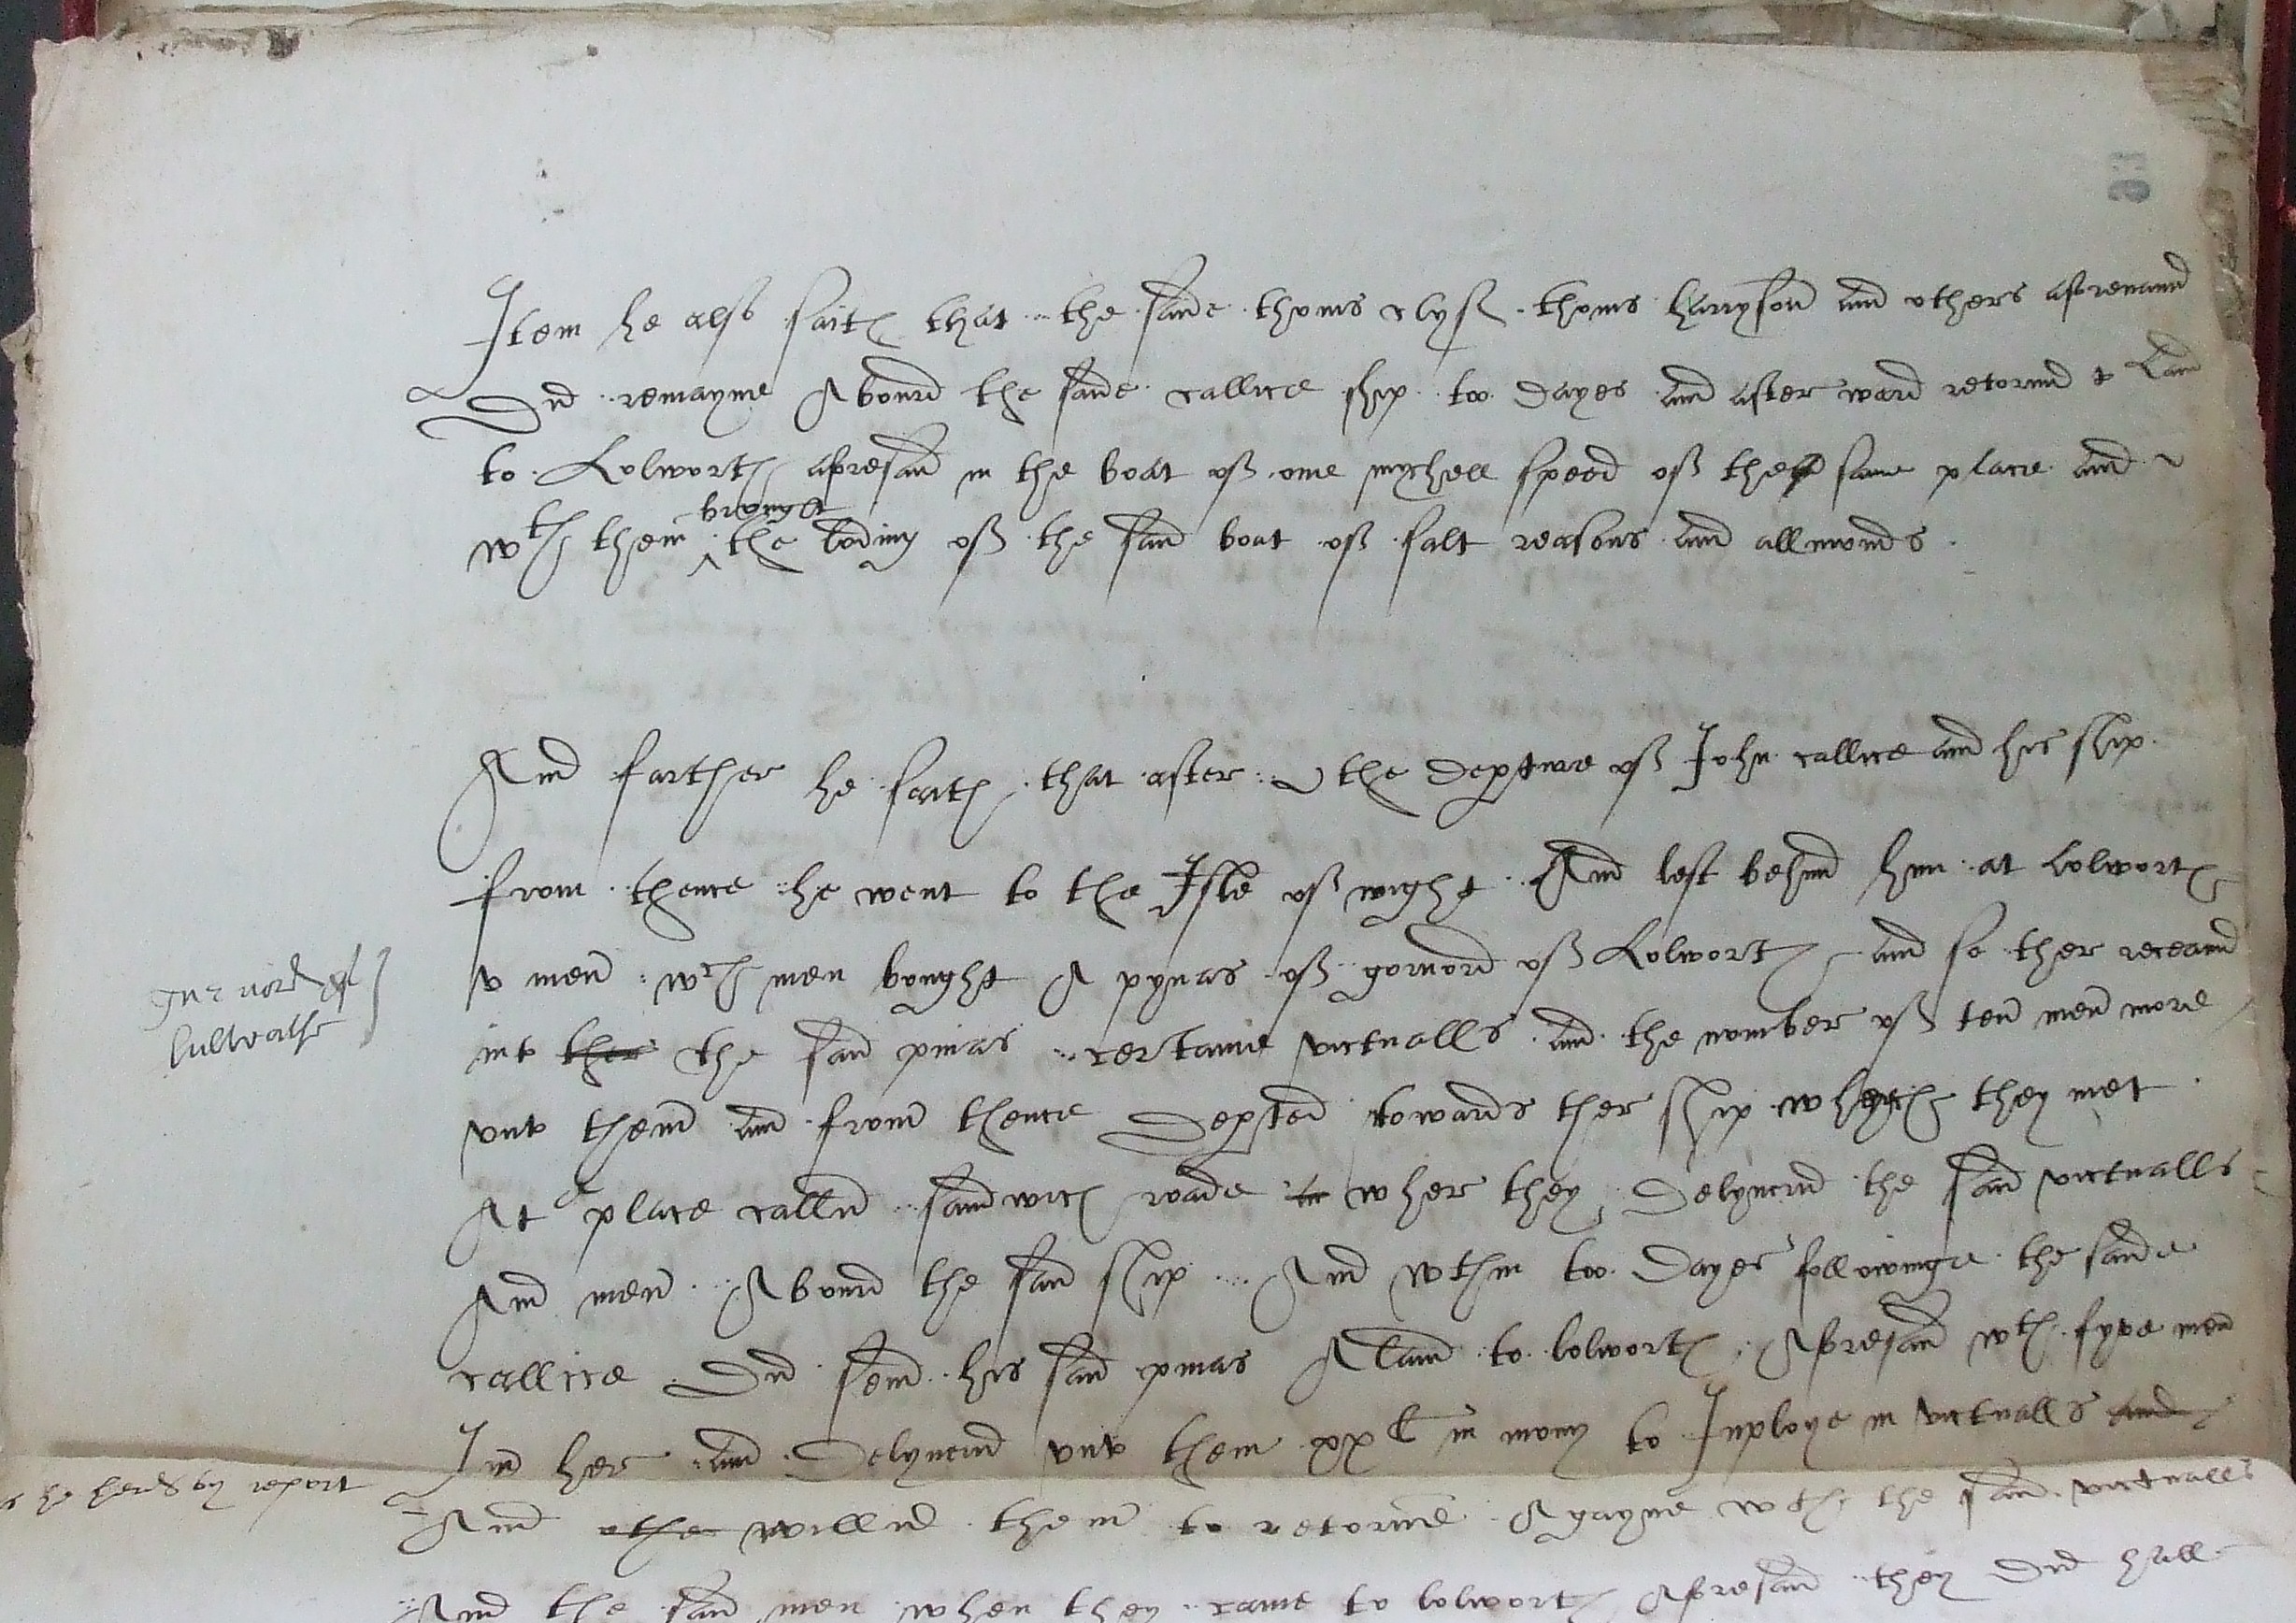 Item he also saith that the saide thoms clyff thoms harryson and others aforenamd
Did remayne Abourd the saide callice ship too Dayes and after ward retornd A Land
to Lolworth aforesaid in the boat off one mychell speed off the same place and
wth them brought the lading off the said boat off salt reasons and allmonds
And farther he saith that after the depture off John callice and his ship
from thence he went to the Isle off wight And left behind him at Lolworth
v men wch men bought A pynas off gornord off Lolworth and so ther receavd
into ther the said pinas certaine victualls and the nomber off ten men more
unto them and from thence Depted towards ther ship which they met
At a place callid sandwich roade in wher they Delyverid the said victualls
And men Abourd the said ship And wthin too Dayes followinge the saide
callice Did send his said pinas A land to lolworth Aforesaid wth fyve men
In her and Delyverid unto them xx li in mony to Inploye in victualls and
And the willid them to retorne Agayne wth the said victualls
And the said men when they came to lolworth Aforesaid they Did hall
lullworthe
he herds by report